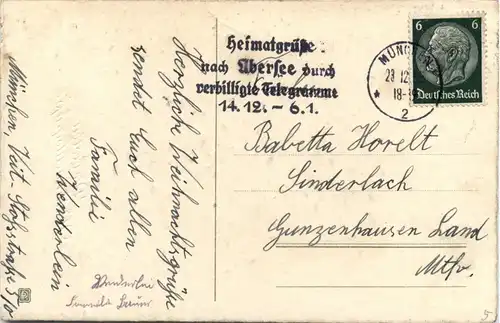 Heimatgrüße
nach Übersee durch
verbilligte Telegramme
14.12. – 6.1.
MÜNCHEN
18-19
2
6 6
Deutsches Reich
Herzliche Weihnachtsgrüße
sendet Euch allen
Familie
Wenderlein
München, Veit-Stoßstraße
Babetta Horelt
Sinderlach
Gunzenhausen Land
Mfr.
5